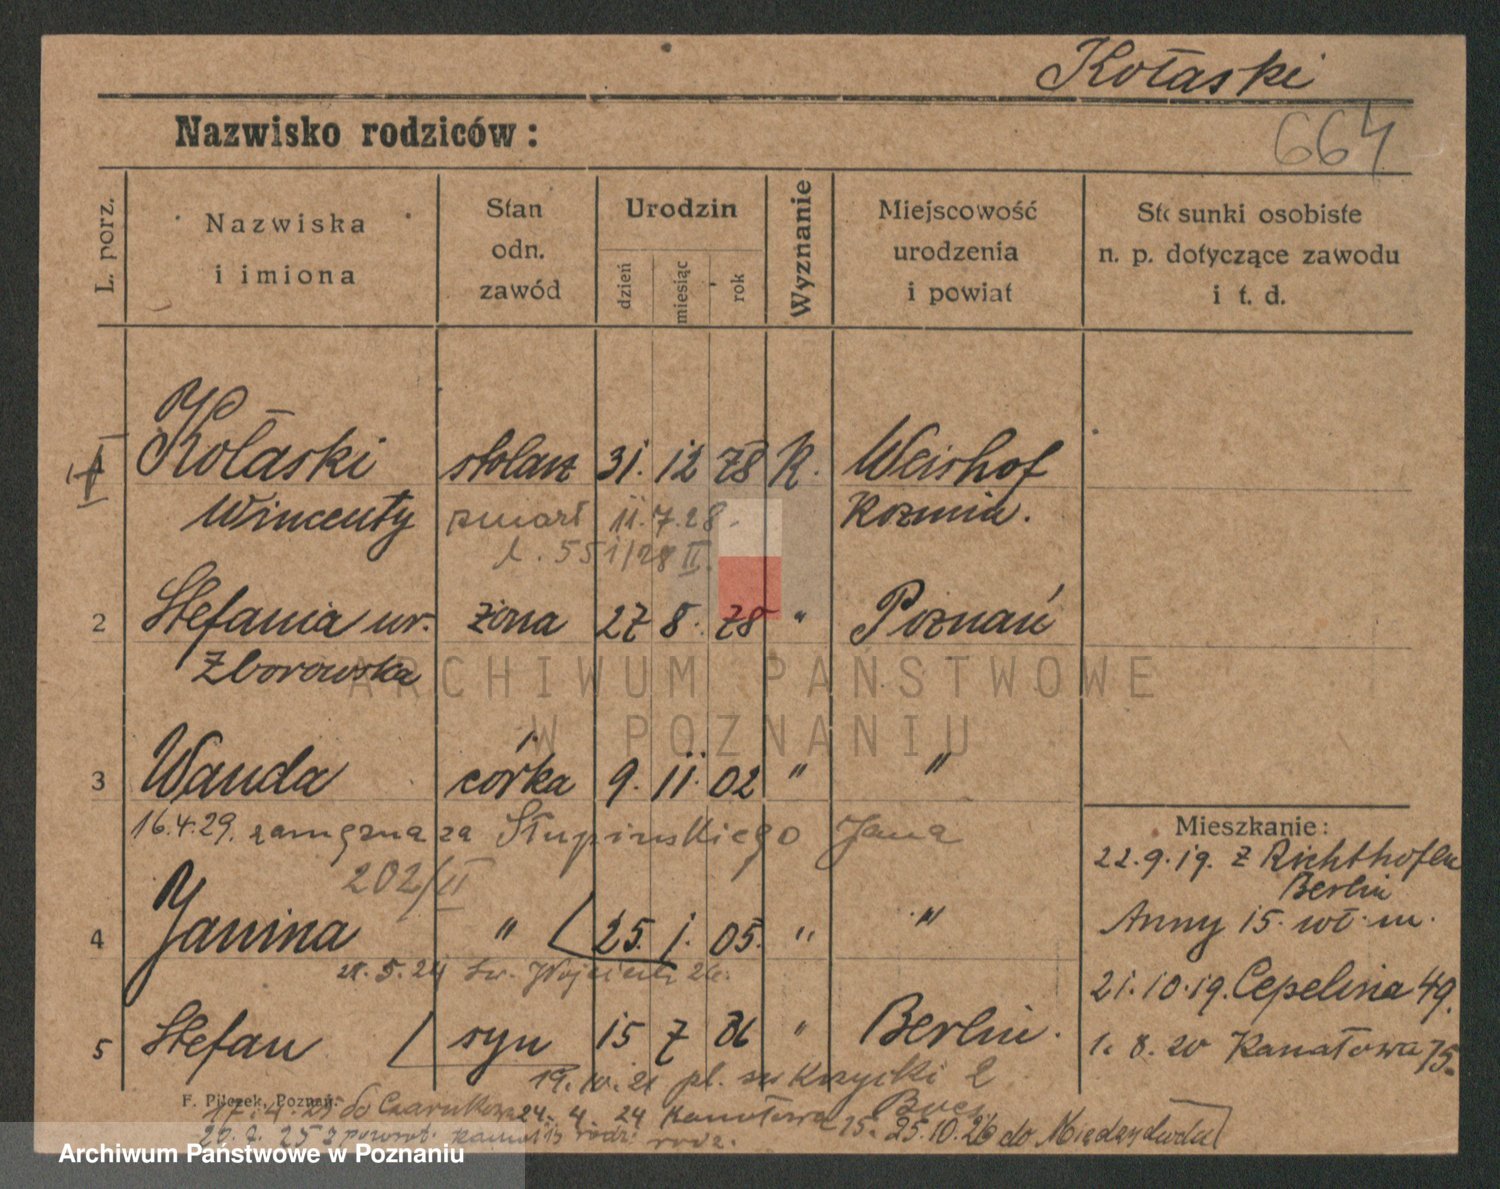 Kołaski
Nazwisko rodziców:
664
L. porz.
Nazwiska i imiona
Stan odn. zawód
Urodzin
dzień
miesiąc
rok
Wyznanie
Miejscowość urodzenia i powiat
Stosunki osobiste n. p. dotyczące zawodu i t. d.
1 Kołaski stolarz 31. 12 78 R. Weishof
Wincenty zmarł 11.7.28. Kozmin.
L. 551/28 II.
2 Stefania ur. żona 27 8. 78 " Poznań
Zborowska
ARCHIWUM PAŃSTWOWE
W POZNANIU
3 Wanda córka 9. 11. 02 " "
16.4.29. zamężna za Słupinskiego Jana
202/II
4 Janina " 25. 1. 05. " "
5. 24 św. Wojciech 26.
5 Stefan syn 15 7 06 " Berlin.
Mieszkanie:
22.9.19. z Richthofen
Berlin
Anny 15. wł. m.
21.10.19. Cepelina 49.
1. 8. 20 Kanałowa 15.
19. 10. 21 pl. 2
F. Pilczek, Poznań.
17. 4. 23 do Czarnkowa 24. 4. 24 Kanałowa 15. 25.10.26 do Międzychodu
25 z powrot. rodz.
Archiwum Państwowe w Poznaniu